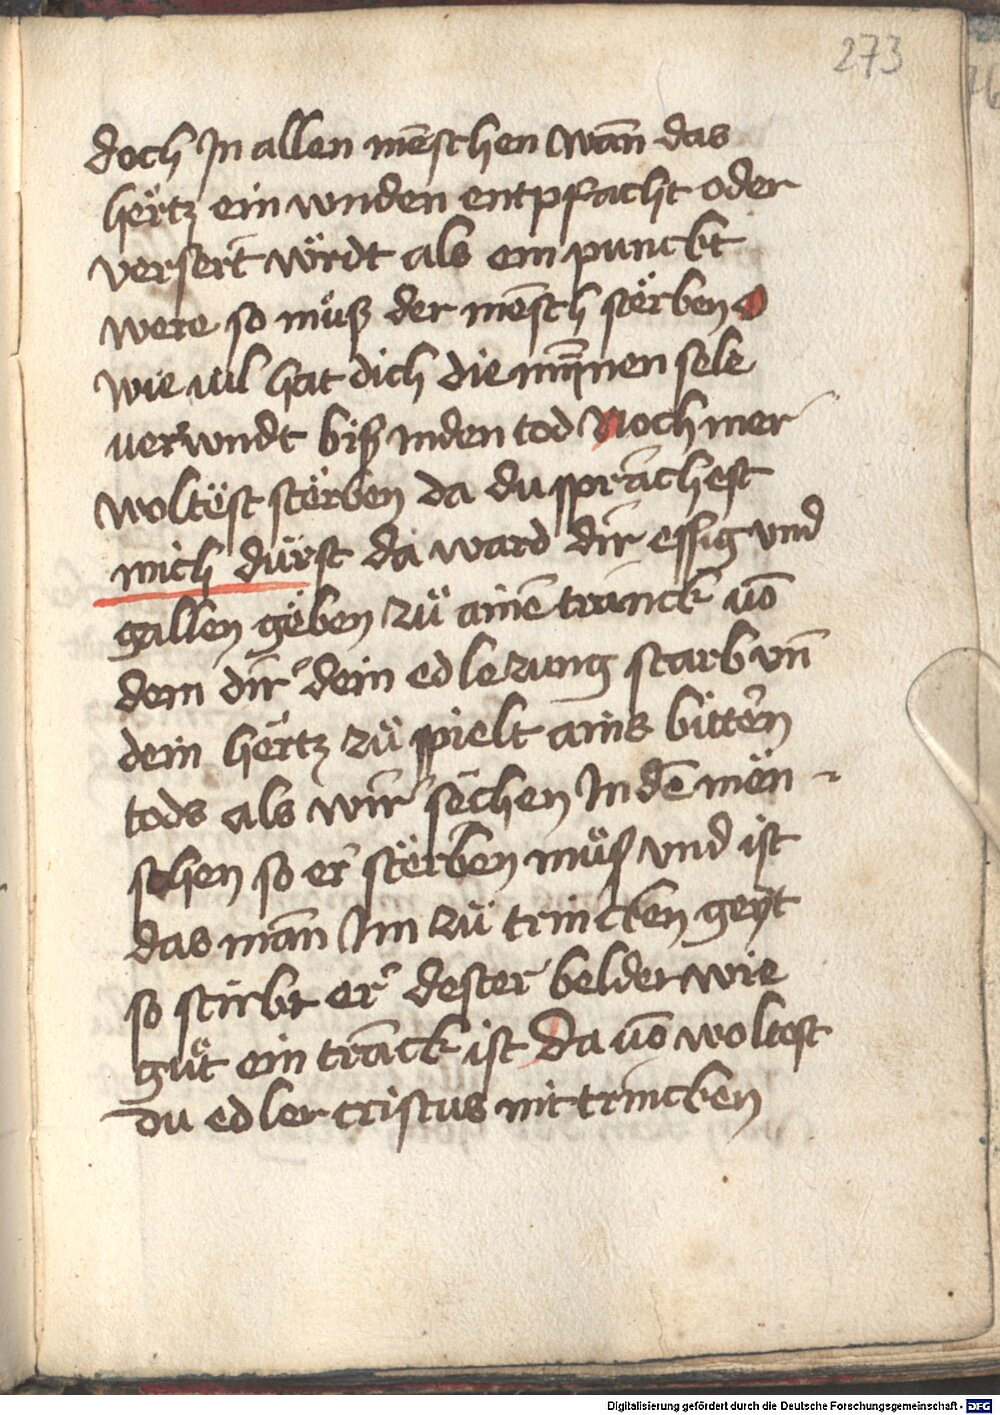 273
doch Jn allen mēschen wān das
hërtz ein wnden entpfacht oder
versert wördt als ein punckt
were so müß der mēsch stërben o
wie uil hat dich die miñnen sele
verwndt biß inden tod Noch mer
woltëst stërben da du sprächest
mich dürst da ward dir essig vnd
gallen gëben zü ainē tranck uō
dem dir dein edle zung starb vn̄
dein hërtz zü spielt ains bittern
tods als wir sëchen Jn dē mën-
schen so er stërben müß vnd ist
das mān Jm zü trincken geyt
so stirbt er dester belder wie
güt ein tranck ist Da uō woltost
du edler cristus nit trincken
Digitalisierung gefördert durch die Deutsche Forschungsgemeinschaft - DFG